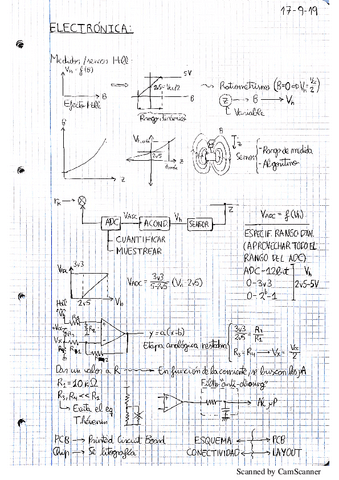 17-9-19
ELECTRÓNICA:
Medidas/sensor Hall
Vh = f(B)
5V
2v5 = Vcc/2
B
B
Efecto Hall
Rango dinámico
Ratiometrismo (B=0 => Vh = Vcc/2)
Z → B → Vh
Variable
B
Z
2v5
Z
Z
Sensor
- Rango de medida
- Algoritmo
ADC
VADC
ACOND.
Vh
SENSOR
Z
CUANTIFICAR
MUESTREAR
VADC = f(Vh)
ESPECIF. RANGO DIN.
(APROVECHAR TODO EL
RANGO DEL ADC)
ADC - 12 Bit
Vh
0 - 3v3
2v5 - 5V
VADC
3v3
2v5
5
Vh
VADC = 3v3 / 5-2v5 (Vh - 2v5)
y = a(x-b)
Etapa analógica restadora
3v3/2v5 = R2/R1
R3 = R4 → Vx = Vcc/2
Dar un valor a R → En función de la corriente, se buscan los µA
R1 = 10 KΩ
R3, R4 << R1
Evita el eq
Thévenin
Filtro "anti-aliasing"
PCB → Printed Circuit Board
Chip → Se litografía
ESQUEMA
PCB
CONECTIVIDAD
LAYOUT
Scanned by CamScanner